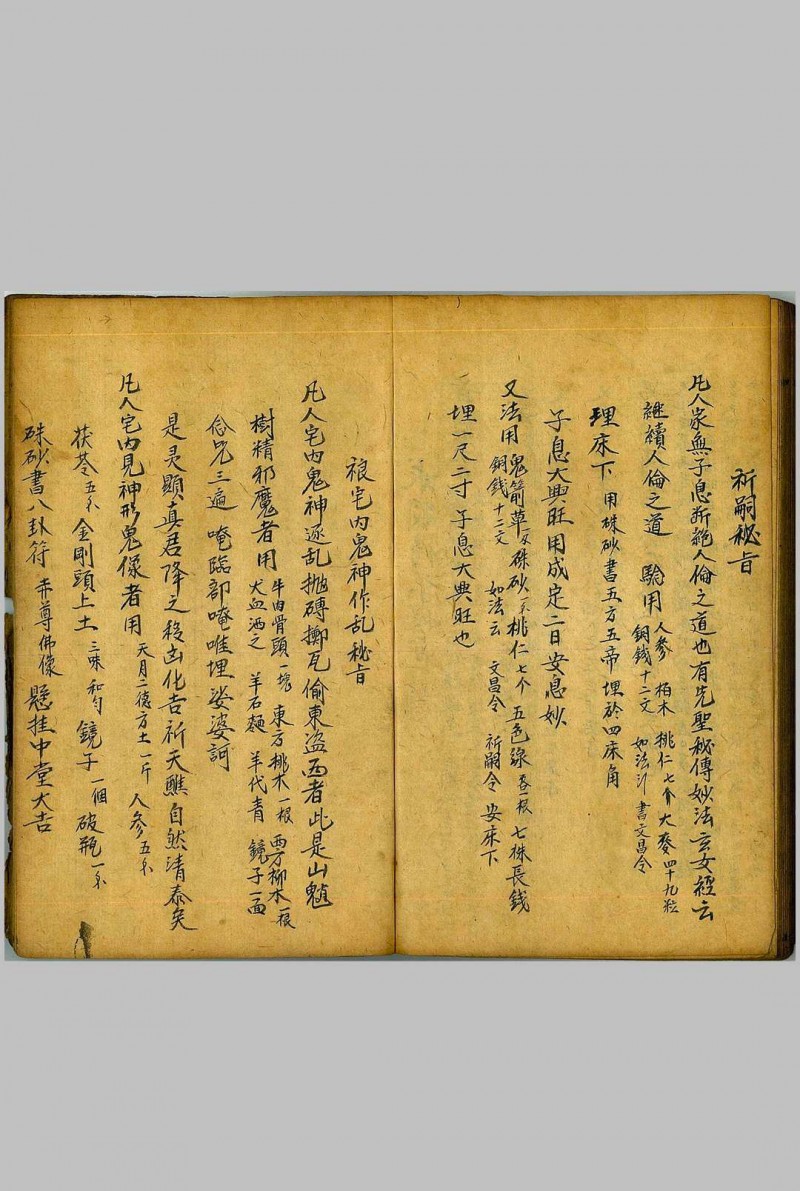 祈嗣秘旨
凡人家無子息斷絕人倫之道也有先聖秘傳妙法玄女經云
繼續人倫之道 驗用 人參 柏木 桃仁七个 大麥四十九粒
銅錢十二文 如法 書文昌令
理床下 用硃砂書五方五帝埋於四床角
子息大興旺用成定二日安息妙
又法用 鬼箭草 硃砂 桃仁七个 五色線各一根 七株長錢
銅錢十二文 如法云 文昌令 祈嗣令 安床下
埋一尺二寸 子息大興旺也
禳宅內鬼神作乱秘旨
凡人宅內鬼神逐乱拋磚擲瓦偷東盜西者此是山魈
樹精邪魔者用 牛肉骨頭一塊 東方桃木一根 西方柳木一根
犬血洒之 羊石麵 羊代青 鏡子一面
念咒三遍 唵臨部唵唯埋娑婆訶
是灵顯真君降之移凶化吉祈天醮自然清泰矣
凡人宅內見神形鬼像者用 天月二德方土一斤 人參五分
茯苓五分 金剛頭上土 三味和匀 鏡子一個 破瓶一个
硃砂書八卦符 赤尊佛像 懸挂中堂大吉